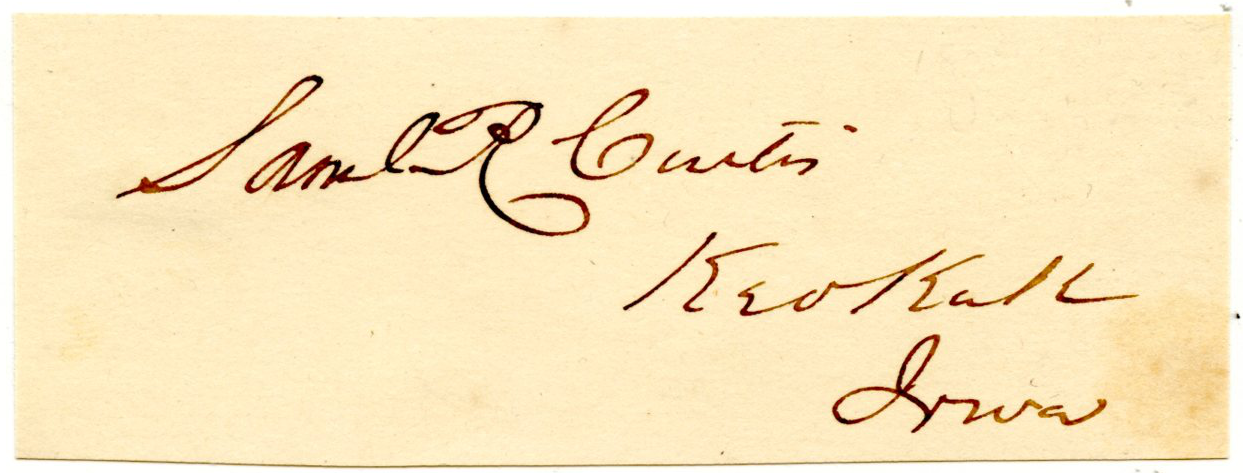 Saml R Curtis
Keokuk
Iowa